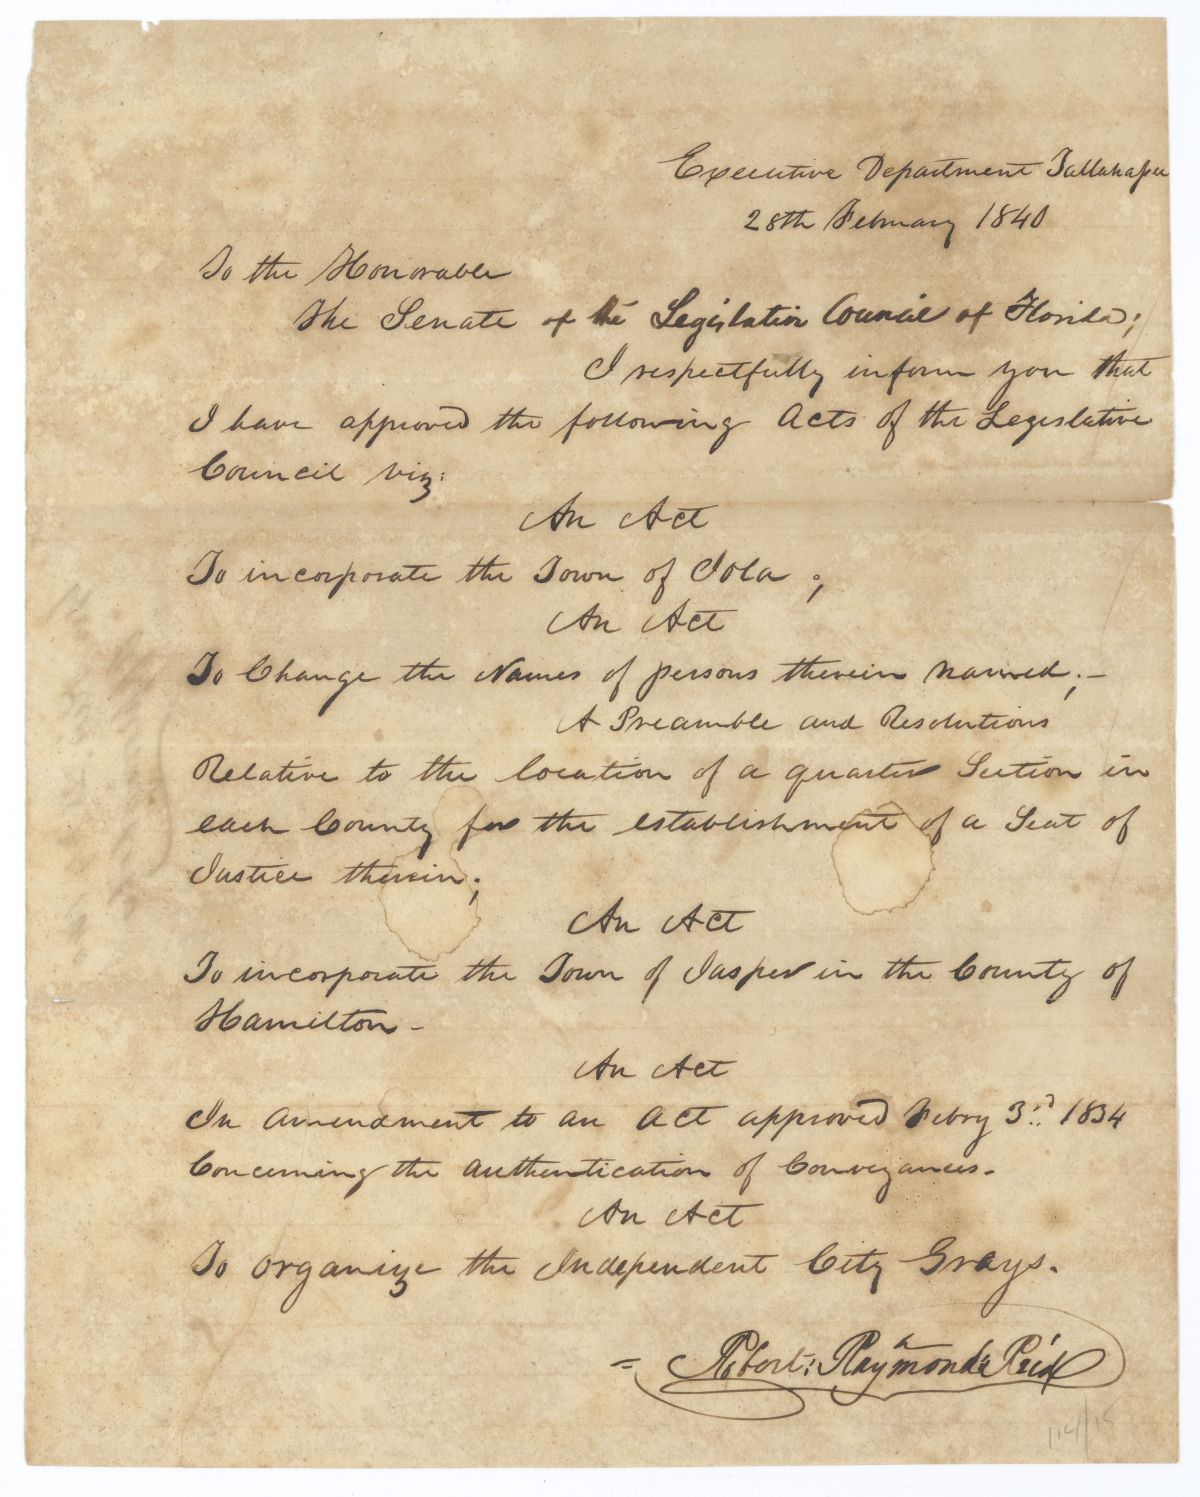 Executive Department Tallahassee
28th February 1840
To the Honorable
The Senate of the Legislative Council of Florida;
I respectfully inform you that
I have approved the following Acts of the Legislative
Council viz:
An Act
To incorporate the Town of Iola;
An Act
To Change the Names of persons therein named;–
A Preamble and Resolutions
Relative to the location of a quarter Section in
each County for the establishment of a Seat of
Justice therein;
An Act
To incorporate the Town of Jasper in the County of
Hamilton–
An Act
In amendment to an act approved Febry 3rd 1834
Concerning the authentication of Conveyances.
An Act
To organize the Independent City Grays.
= Robert: Raymond Reid
114/15